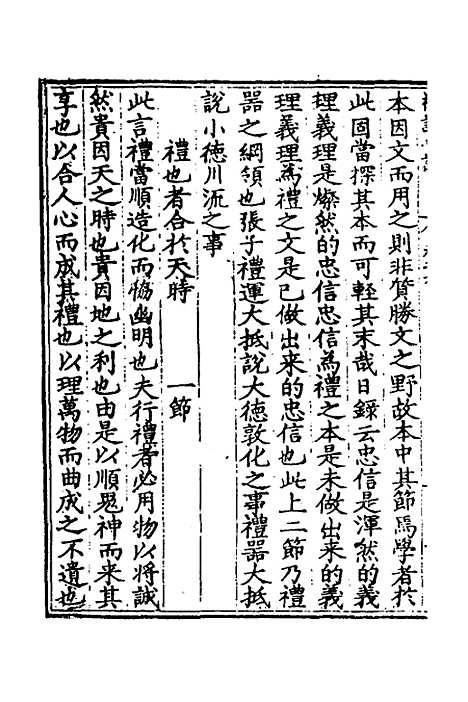 本因文而用之則非質勝文之野故本中其節焉學者於
此固當探其本而可輕其末哉日錄云忠信是渾然的義
理義理是燦然的忠信忠信為禮之本是未做出来的義
理義理為禮之文是已做出来的忠信也此上二節乃禮
器之綱領也張子禮運大抵說大德敦化之事禮器大抵
說小德川流之事
禮也者合於天時　一節
此言禮當順造化而恊幽明也夫行禮者必用物以將誠
然貴因天之時也貴因地之利也由是以順鬼神而来其
享也以合人心而成其禮也以理萬物而曲成之不遺也